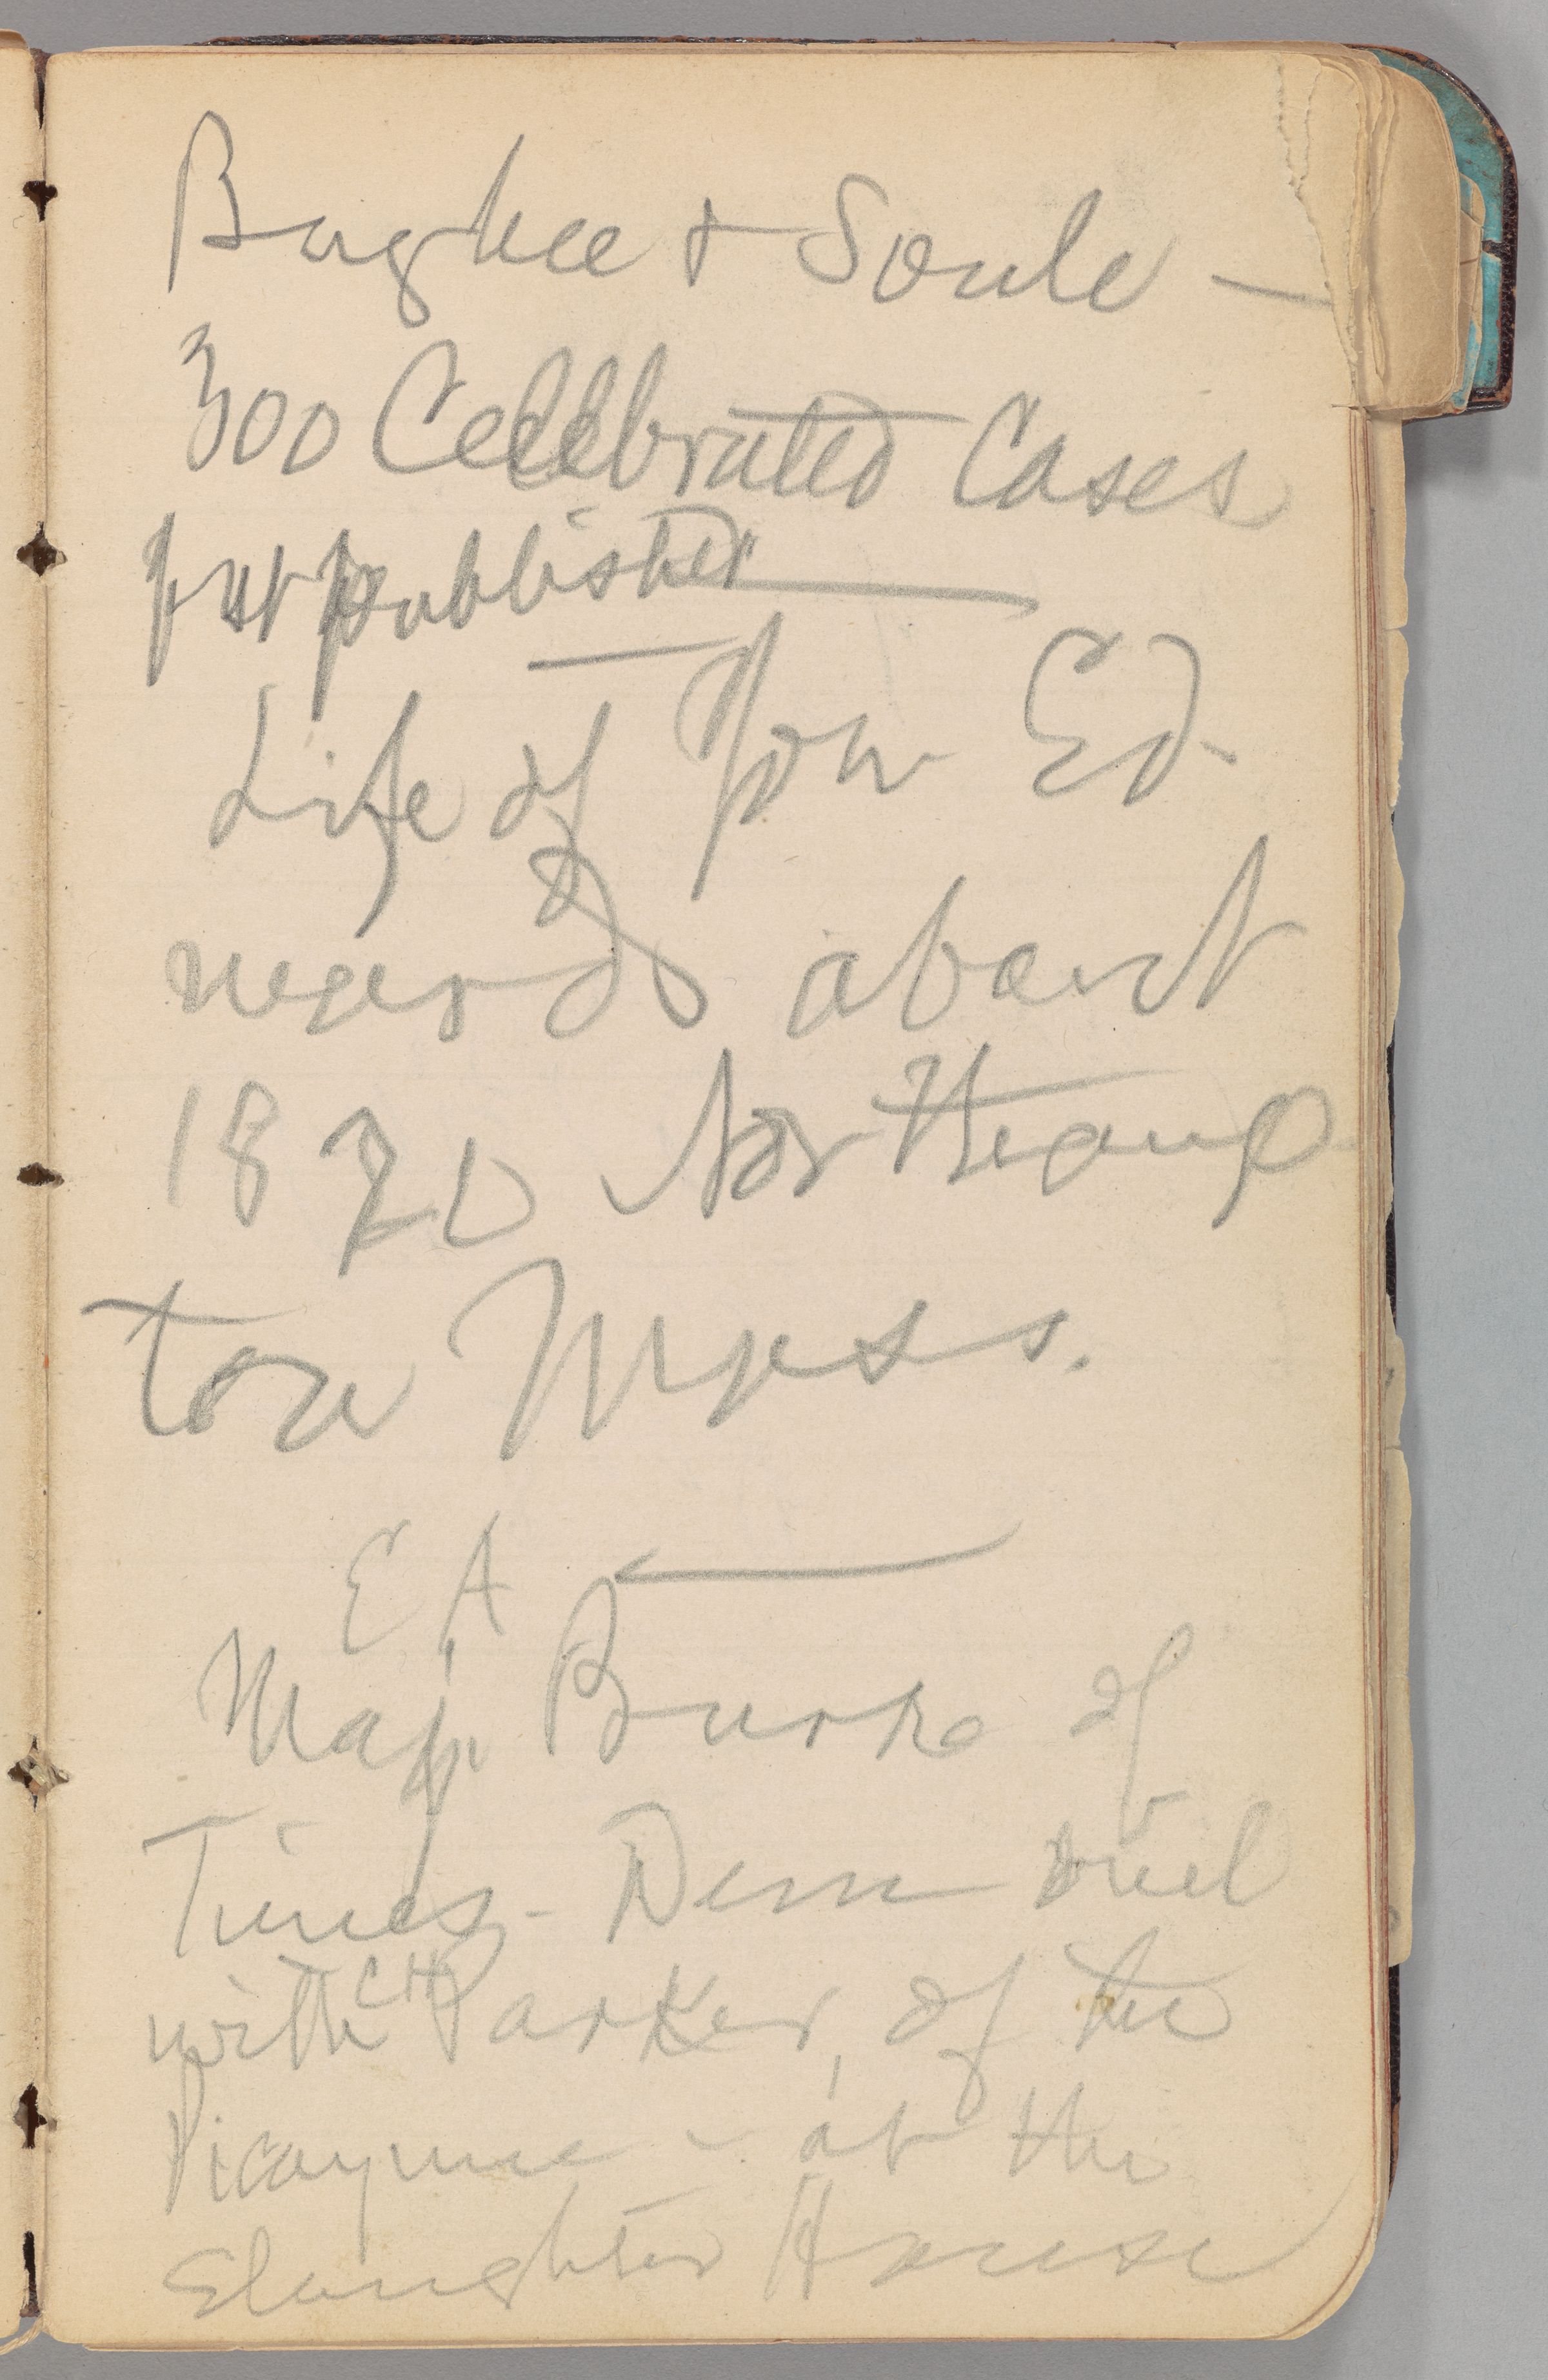 Bugbee & Soule —
300 Celebrated Cases
just published
Life of Jon Ed
wards about
1820 Northamp
ton Mass.
E A
Maj. Burke of
Times-Dem duel
with CH Parker, of the
Picayune - at the
Slaughter House